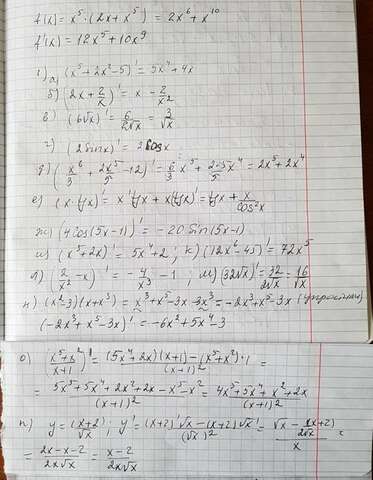 f(x) = x⁵·(2x+x⁵) = 2x⁶+x¹⁰
f'(x) = 12x⁵+10x⁹
1) а) (x⁵+2x²-5)' = 5x⁴+4x
б) (2x+2/x)' = x - 2/x²
в) (6√x)' = 6/2√x = 3/√x
г) (2sinx)' = 2cosx
д) (x⁶/3 + 2x⁵/5 - 12)' = 6/3 x⁵ + 2·5x⁴/5 = 2x⁵+2x⁴
е) (x·tgx)' = x'tgx + x(tgx)' = tgx + x/cos²x
ж) (4cos(5x-1))' = -20sin(5x-1)
и) (x⁵+2x)' = 5x⁴+2; к) (12x⁶-45)' = 72x⁵
л) (2/x⁴ - x)' = -4/x³ - 1; м) (32√x)' = 32/2√x = 16/√x
н) (x²-3)(x+x³) = x³+x⁵-3x-3x³ = -2x³+x⁵-3x (упростили)
(-2x³+x⁵-3x)' = -6x²+5x⁴-3
о) (x⁵+x²/x+1)' = (5x⁴+2x)(x+1)-(x⁵+x²)·1/(x+1)² =
= 5x⁵+5x⁴+2x²+2x-x⁵-x²/(x+1)² = 4x⁵+5x⁴+x²+2x/(x+1)²
п) y = (x+2)/√x; y' = (x+2)'√x-(x+2)√x'/(√x)² = √x - (x+2)/2√x/x =
= 2x-x-2/2x√x = x-2/2x√x